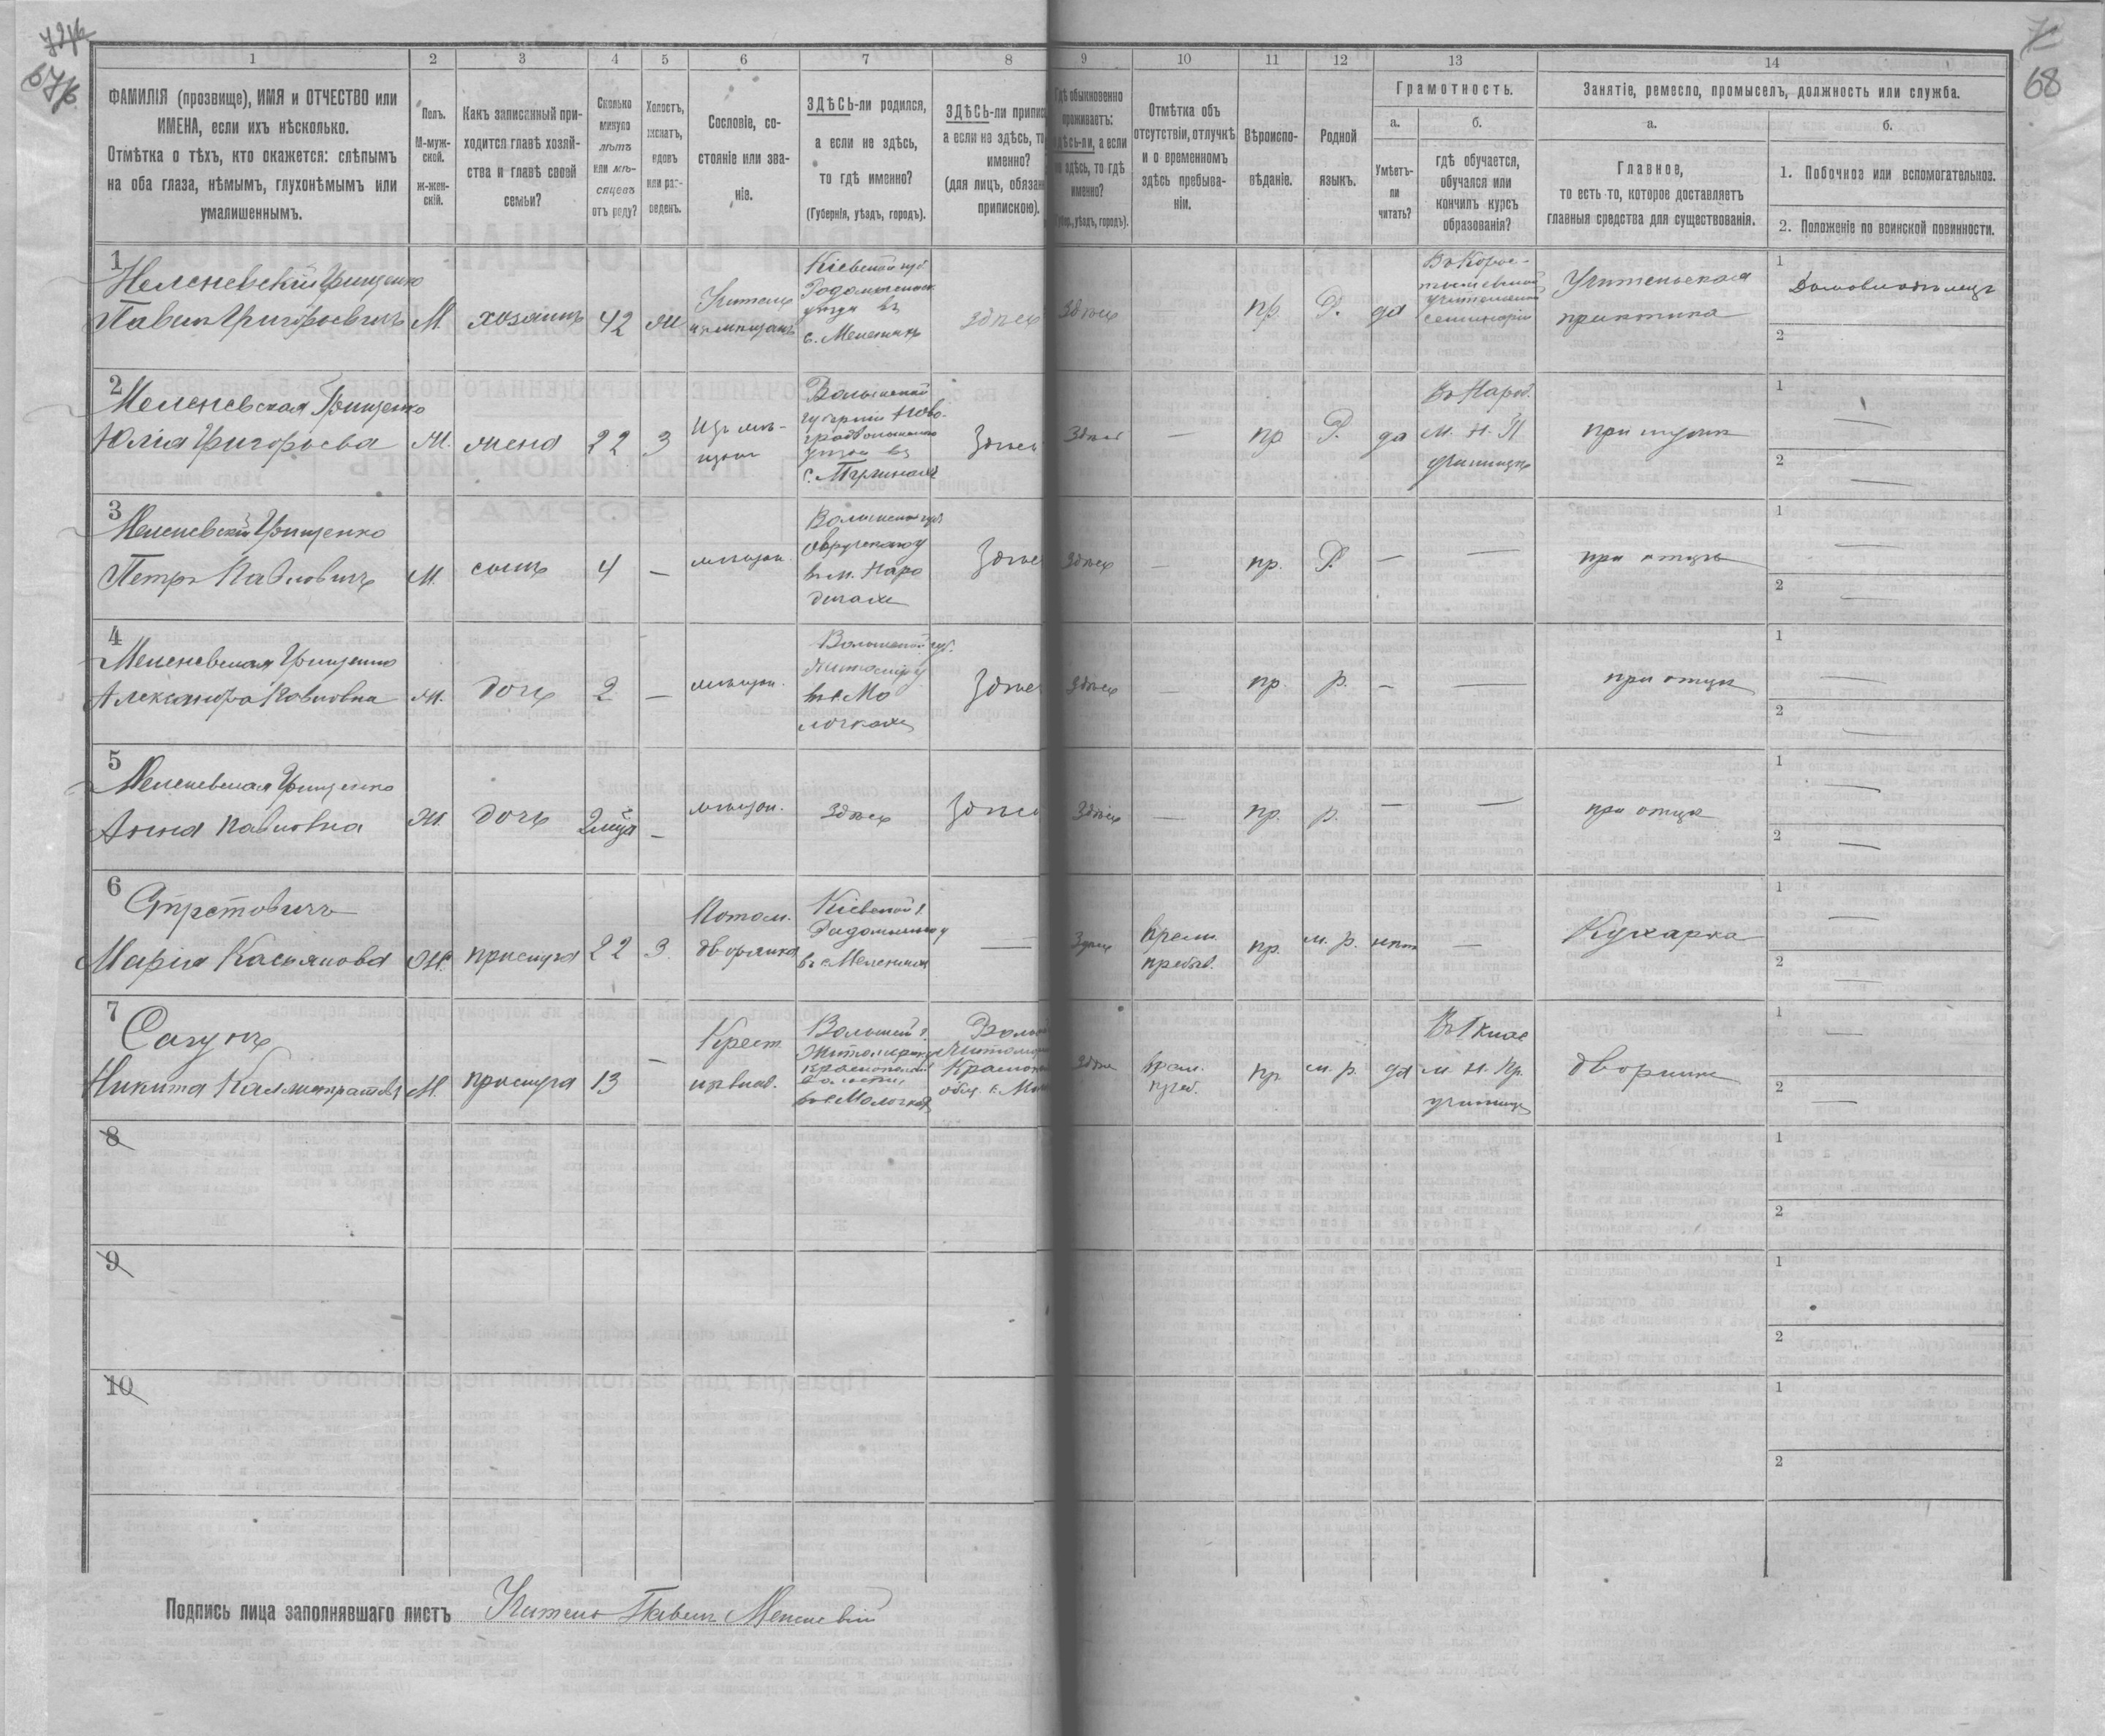 72 об
67 об.
7
68
1
2
3
4
5
6
7
8
9
10
11
12
13
14
ФАМИЛІЯ (прозвище), ИМЯ и ОТЧЕСТВО или
ИМЕНА, если ихъ нѣсколько.
Отмѣтка о тѣхъ, кто окажется: слѣпымъ
на оба глаза, нѣмымъ, глухонѣмымъ или
умалишеннымъ.
Полъ.
М-муж-
ской.
ж-жен-
скій.
Какъ записанный при-
ходится главѣ хозяй-
ства и главѣ своей
семьи?
Сколько
минуло
лѣтъ
или мѣ-
сяцевъ
отъ роду?
Холостъ,
женатъ,
вдовъ
или раз-
веденъ.
Сословіе, со-
стояніе или зва-
ніе.
ЗДѢСЬ-ли родился,
а если не здѣсь,
то гдѣ именно?
(Губернія, уѣздъ, городъ).
ЗДѢСЬ-ли припис
а если не здѣсь, то
именно?
(для лицъ, обязан
припискою).
Гдѣ обыкновенно
проживаетъ:
здѣсь-ли, а если
не здѣсь, то гдѣ
именно?
(Губ., уѣздъ, городъ).
Отмѣтка объ
отсутствіи, отлучкѣ
и о временномъ
здѣсь пребыва-
ніи.
Вѣроиспо-
вѣданіе.
Родной
языкъ.
Грамотность.
а.
б.
Умѣетъ-
ли
читать?
гдѣ обучается,
обучался или
кончилъ курсъ
образованія?
Занятіе, ремесло, промыселъ, должность или служба.
а.
б.
Главное,
то есть то, которое доставляетъ
главныя средства для существованія.
1. Побочное или вспомогательное.
2. Положеніе по воинской повинности.
1
Меленевскій Грищенко
Павелъ Григорьевичъ
М.
хозяинъ
42
ж
Учитель
изъ мѣщанъ
Кіевской губ
Радомысльск
уѣзда въ
с. Меленяхъ
здѣсь
здѣсь
—
пр.
Р.
да
Въ Корос-
тышевской
учительской
семинаріи
Учительская
практика
1
Домовладѣлецъ
2
2
Меленевская Грищенко
Юлія Григорьева
Ж.
жена
22
З
Изъ мѣ-
щанъ
Волынской
губерніи Ново-
градволынскаго
уѣзда въ
здѣсь
здѣсь
—
пр
Р.
да
Въ Народ.
М. Н. П
училищѣ
при мужѣ
1 —
2 —
3
Меленевскій Грищенко
Петръ Павловичъ
М.
сынъ
4
—
мѣщан.
Волынской губ
Овручскаго у
въ м. Наро
дичахъ
здѣсь
здѣсь
—
пр.
Р.
—
—
при отцѣ
1 —
2 —
4
Меленевская Грищенко
Александра Павловна
Ж.
дочь
2
—
мѣщан.
Волынской губ.
Житомир у
въ с. Мо
лочкахъ
здѣсь
здѣсь
—
пр.
р.
—
—
при отцѣ
1 —
2 —
5
Меленевская Грищенко
Анна Павловна
Ж.
дочь
2 мѣс
—
мѣщан.
здѣсь
здѣсь
здѣсь
—
пр.
р.
—
—
при отцѣ
1 —
2 —
6
Марія Касьянова
Ж.
прислуга
22
З.
Потом.
дворянка
Кіевской г.
Радомысль у
въ с. Меленяхъ
—
здѣсь
врем.
пребыв.
пр.
м. р.
нѣтъ
—
Кухарка
1 —
2 —
7
Сагунъ
Никита
М.
прислуга
13
—
Крест.
Волынск г.
Житомирск у
Краснопольск
волости,
въ с. Молочкахъ
Волын
Житомир
Красноп
общ. с. Мол
здѣсь
врем.
преб.
пр
м. р.
да
м. н. пр.
училищѣ
дворникъ
1 —
2 —
8
1
2
9
1
2
10
1
2
Подпись лица заполнявшаго листъ Учитель Павелъ Меленевскій